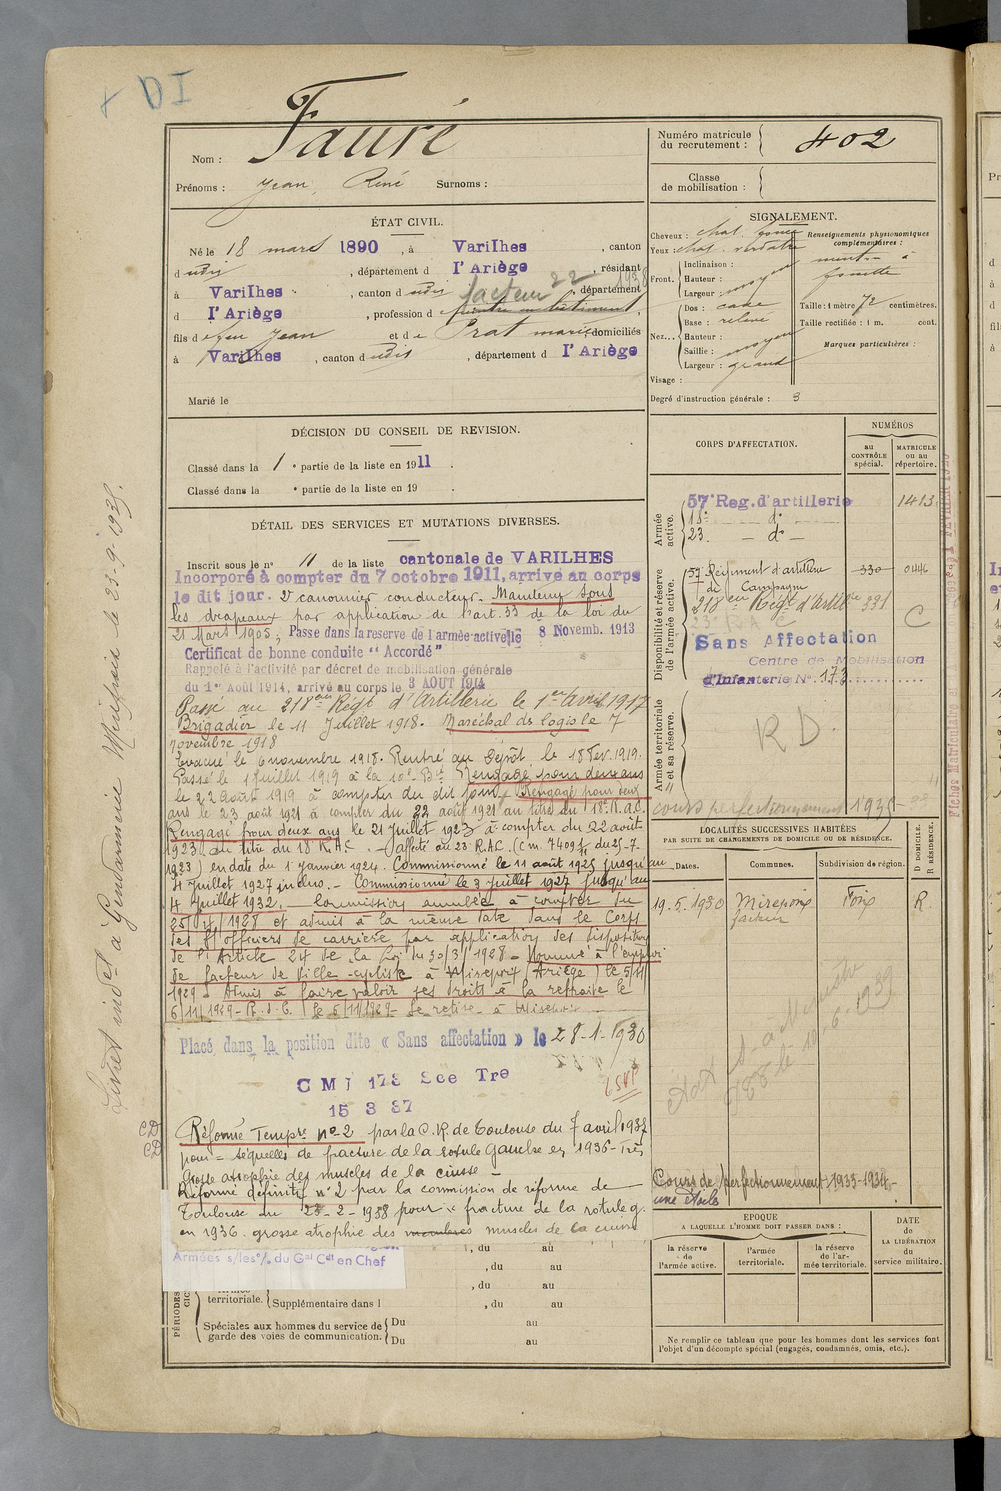 + DI
Nom : Fauré
Prénoms : Jean, René Surnoms :
Numéro matricule
du recrutement : 402
Classe
de mobilisation :
ÉTAT CIVIL.
Né le 18 mars 1890, à Varilhes, canton
d udit, département d l'Ariège, résidant
à Varilhes, canton d udit facteur 22 1938, département
d l'Ariège, profession d peintre en bâtiment,
fils d e feu Jean et d e Prat marie domiciliés
à Varilhes, canton d udit, département d l'Ariège
Marié le
SIGNALEMENT.
Cheveux : chat.
Yeux : chat. verdatre
Front. Inclinaison :
Hauteur : moy
Largeur
Nez... Dos : cave
Base : relevé
Hauteur :
Saillie : moyen
Largeur : grand
Visage :
Renseignements physionomiques
complémentaires :
menton à
fossette
Taille : 1 mètre 72 centimètres.
Taille rectifiée : 1 m. cent.
Marques particulières :
Degré d'instruction générale : 3
DÉCISION DU CONSEIL DE REVISION.
Classé dans la 1e partie de la liste en 1911.
Classé dans la e partie de la liste en 19 .
DÉTAIL DES SERVICES ET MUTATIONS DIVERSES.
Inscrit sous le n° 11 de la liste cantonale de VARILHES
Incorporé à compter du 7 octobre 1911, arrivé au corps
le dit jour. 2e canonnier conducteur. Maintenu sous
les drapeaux par application de l'art. 33 de la loi du
21 Mars 1905, Passé dans la réserve de l'armée active le 8 Novemb. 1913
Certificat de bonne conduite "Accordé"
Rappelé à l'activité par décret de mobilisation générale
du 1er Août 1914, arrivé au corps le 3 AOUT 1914
Passé au 218eme Régt d'Artillerie le 1er Avril 1917
Brigadier le 11 Juillet 1918. Maréchal des logis le 7
novembre 1918
Evacué le 6 novembre 1918. Rentré au Dépôt le 18 Fev. 1919.
Passé le 1 Juillet 1919 à la 10e Bie Rengagé pour deux ans
le 22 Août 1919 à compter du dit jour. Rengagé pour deux
ans le 23 août 1921 à compter du 22 août 1921 au titre du 18e R.a.c.
Rengagé pour deux ans le 21 Juillet 1923 à compter du 22 août
1923 au titre du 18 R.A.C. Affecté au 23 R.A.C. (C.M. 7409 du 25-7-
1923) en date du 1 janvier 1924. Commissionné le 11 août 1925 jusqu'au
4 Juillet 1927 inclus. - Commissionné le 3 Juillet 1927 jusqu'au
4 Juillet 1932. - Commission annulée à compter du
25/4/1928 et admis à la même date dans le Corps
des S/officiers de carrière par application des dispositions
de l'Article 24 de la Loi du 30/3/1928 - Nommé à l'emploi
de facteur de Ville-cycliste à Mirepoix (Ariège) le 5/11
1929. Admis à faire valoir ses droits à la retraite le
6/11/1929 - R.d.C. le 6/11/1929 - Se retire à Mirepoix
Placé dans la position dite « Sans affectation » le 28-1-1930
CMI 173 Sce Tre
15 3 37
CD
CD
Réformé Tempre n° 2 par la C.R. de Toulouse du 7 avril 1937
pour = séquelles de fracture de la rotule Gauche en 1936 - très
Grosse atrophie des muscles de la cuisse -
Réformé définitif n° 2 par la commission de réforme de
Toulouse du 25-2-1938 pour « fracture de la rotule g.
en 1936. grosse atrophie des membres muscles de la cuisse
Armées s/les o/. du Gal Cdt en Chef
PÉRIODES
, du au
, du au
, du au
territoriale. Supplémentaire dans l , du au
Spéciales aux hommes du service de
garde des voies de communication. Du au
Du au
CORPS D'AFFECTATION.
NUMÉROS
au
CONTRÔLE
spécial.
MATRICULE
ou au
répertoire.
Armée
active.
57e Reg. d'artillerie 1413
18e - de -
23. - de -
Disponibilité et réserve
de l'armée active.
57 Régiment d'artillerie 330 0446
de Campagne
218 eme Régt d'Artillie 331
C
Sans Affectation
Centre de Mobilisation
d'Infanterie N° 173
Armée territoriale
et sa réserve.
RD.
cours perfectionnement 1932-33
LOCALITÉS SUCCESSIVES HABITÉES
PAR SUITE DE CHANGEMENTS DE DOMICILE OU DE RÉSIDENCE.
Dates.
Communes.
Subdivision de région.
D DOMICILE.
R RÉSIDENCE.
19.5.1930 Mirepoix Foix R.
facteur
Cours de perfectionnement 1933-1934
une étoile
EPOQUE
A LAQUELLE L'HOMME DOIT PASSER DANS :
la réserve
de
l'armée active.
l'armée
territoriale.
la réserve
de l'ar-
mée territoriale.
DATE
de
LA LIBÉRATION
du
service militaire.
Ne remplir ce tableau que pour les hommes dont les services font
l'objet d'un décompte spécial (engagés, condamnés, omis, etc.).
Livret indel à Gendarmerie Mirepoix le 23.9.1935.